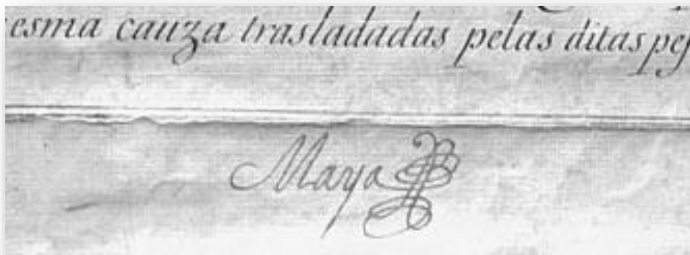 esma cauza trasladadas pelas ditas pes
Maya